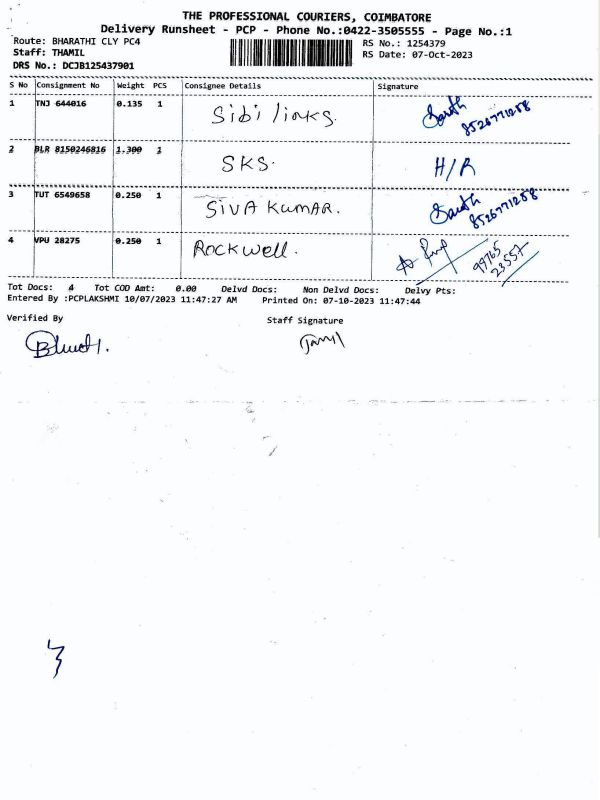 THE PROFESSIONAL COURIERS, COIMBATORE
Delivery Runsheet - PCP - Phone No.:0422-3505555 - Page No.:1
Route: BHARATHI CLY PC4 RS No.: 1254379
Staff: THAMIL RS Date: 07-Oct-2023
DRS No.: DCJB125437901
S No Consignment No Weight PCS Consignee Details Signature
1 TNJ 644016 0.135 1 Sibi links. 8526771258
2 BLR 8150246816 1.300 1 SKS. H/R
3 TUT 6549658 0.250 1 SIVA KUMAR. 8526771258
4 VPU 28275 0.250 1 ROCKWELL. 99765 23557
Tot Docs: 4 Tot COD Amt: 0.00 Delvd Docs: Non Delvd Docs: Delvy Pts:
Entered By :PCPLAKSHMI 10/07/2023 11:47:27 AM Printed On: 07-10-2023 11:47:44
Verified By Staff Signature